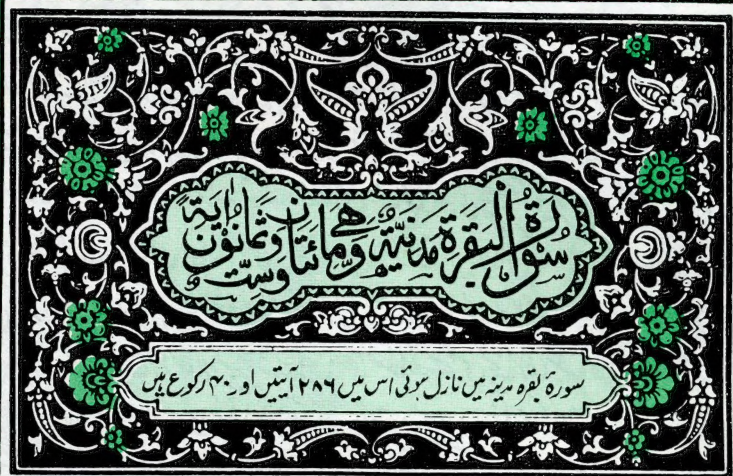 سُوْرَةُ الْبَقَرَةِ مَدَنِيَّةٌ وَّهِيَ مِائَتَانِ وَسِتٌّ وَّثَمَانُوْنَ اٰيَةً
سورۂ بقرہ مدینہ میں نازل ہوئی اس میں ۲۸۶ آیتیں اور ۴۰ رکوع ہیں